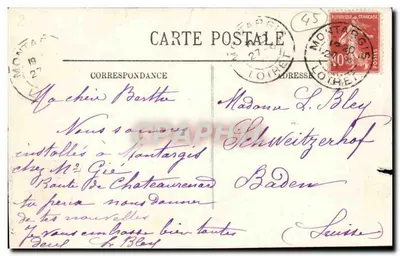 45
CARTE POSTALE
MONTARGIS
LOIRET
MONTARGIS
LOIRET
REPUBLIQUE FRANÇAISE
10
CORRESPONDANCE
ADRESSE
Ma chère Berthe
Nous sommes
installés à Montargis
chez Mr Gié
Route de Chateaurenard
tu peux nous donner
de tes nouvelles
Je vous embrasse bien toutes
deux L. Bley
Madame L. Bley
Schweitzerhof
Baden
(Suisse)